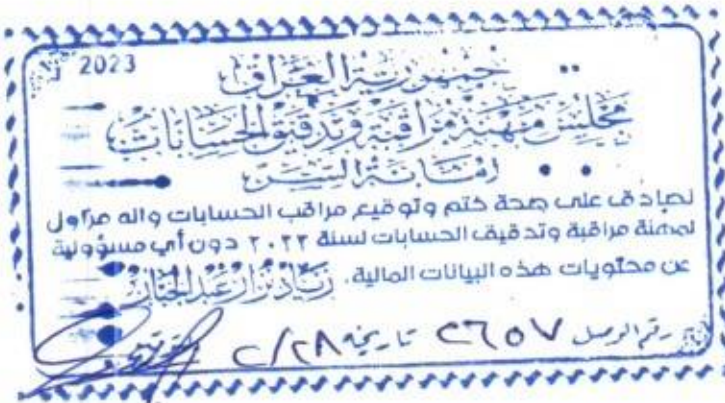 2023
جمهورية العراق
مجلس مهنة مراقبة وتدقيق الحسابات
امانة السر
نصادق على صحة ختم وتوقيع مراقب الحسابات وانه مزاول
لمهنة مراقبة وتدقيق الحسابات لسنة ٢٠٢٣ دون أي مسؤولية
عن محتويات هذه البيانات المالية. زياد نزار عبد الجبار
رقم الوصل ٢٦٥٧ تاريخه ٢/٢٨ توقيع